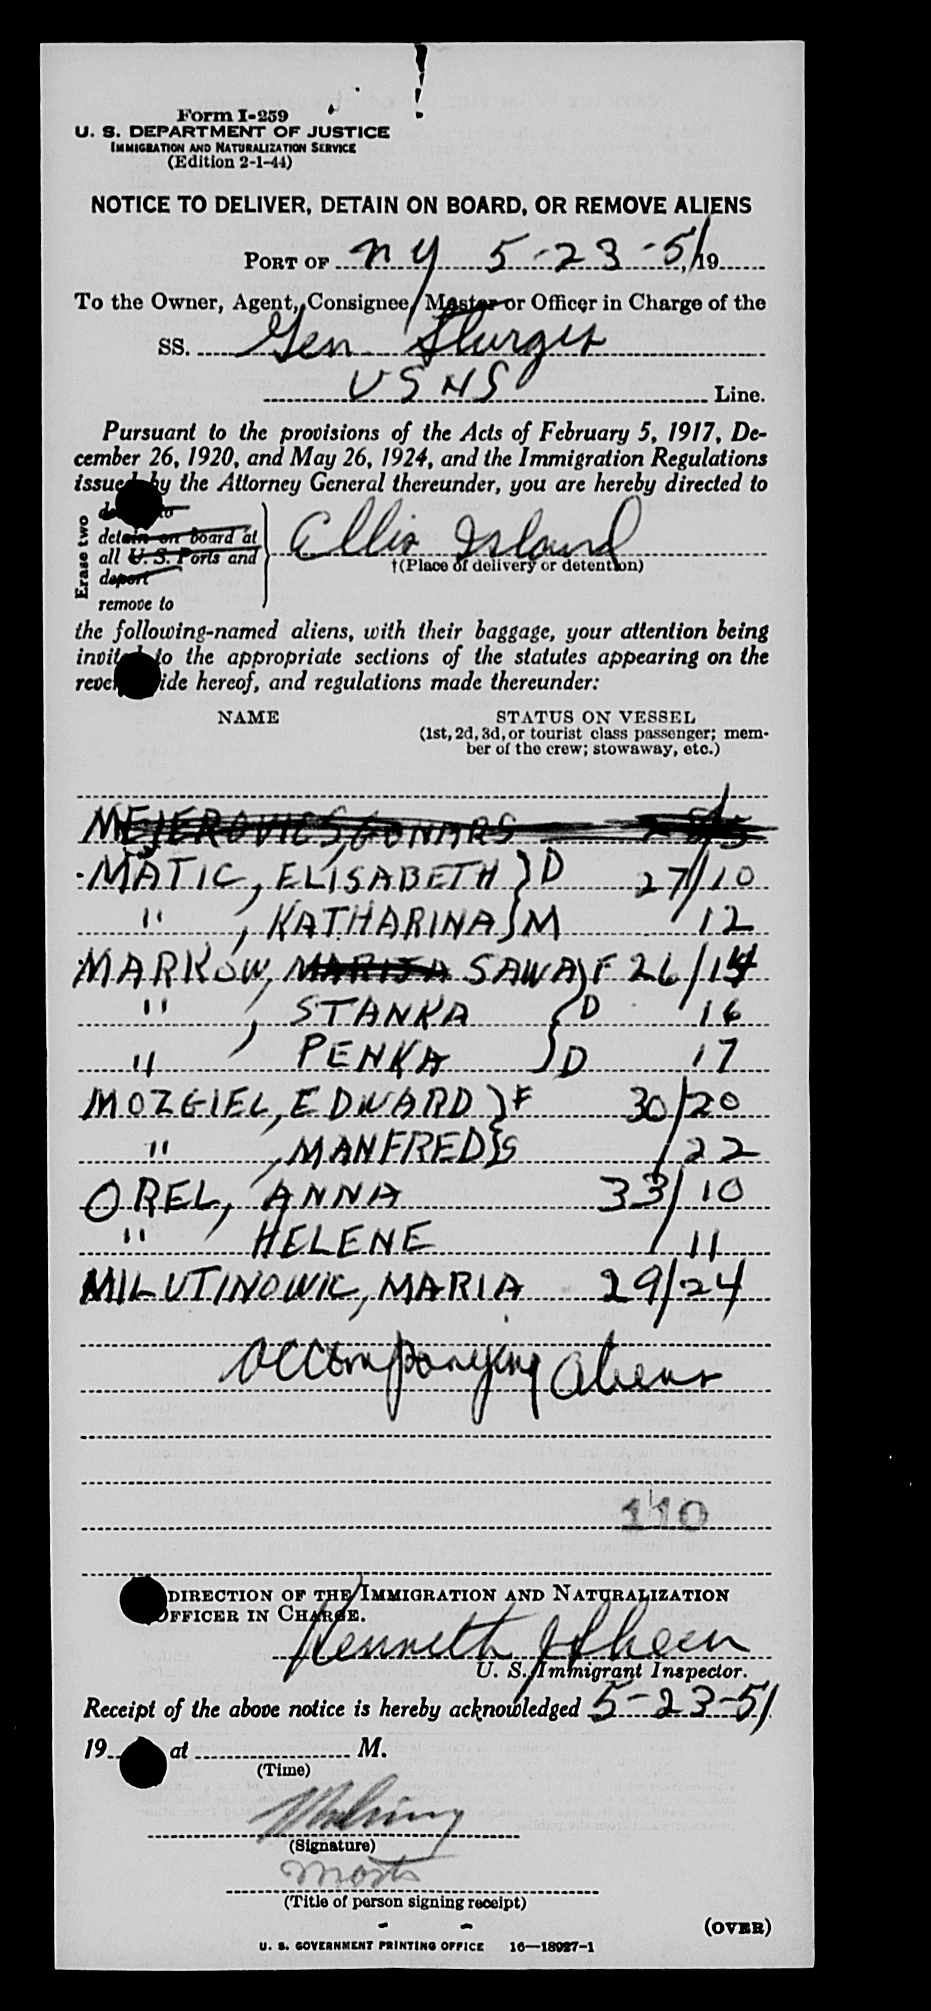 Form I-259
U. S. DEPARTMENT OF JUSTICE
IMMIGRATION AND NATURALIZATION SERVICE
(Edition 2-1-44)
NOTICE TO DELIVER, DETAIN ON BOARD, OR REMOVE ALIENS
PORT OF NY 5-23-51, 19
To the Owner, Agent, Consignee, Master or Officer in Charge of the
SS. Gen Sturgis
USNS Line.
Pursuant to the provisions of the Acts of February 5, 1917, De-
cember 26, 1920, and May 26, 1924, and the Immigration Regulations
issued by the Attorney General thereunder, you are hereby directed to
Erase two
to
detain on board at
all U. S. Ports and
deport
remove to
Ellis Island
†(Place of delivery or detention)
the following-named aliens, with their baggage, your attention being
invited to the appropriate sections of the statutes appearing on the
reverse side hereof, and regulations made thereunder:
NAME STATUS ON VESSEL
(1st, 2d, 3d, or tourist class passenger; mem-
ber of the crew; stowaway, etc.)
MEJEROVICS, GUNARS
MATIC, ELISABETH } D 27/10
" , KATHARINA } M 12
MARKOW, MARIJA SAWA } F 26/14
" , STANKA } D 16
" PENKA } D 17
MOZGIEL, EDWARD } F 30/20
" , MANFRED } S /22
OREL, ANNA 33/10
" HELENE / 11
MILUTINOWIC, MARIA 29/24
accompanying aliens
110
DIRECTION OF THE IMMIGRATION AND NATURALIZATION
OFFICER IN CHARGE.
Kenneth J Sheen
U. S. Immigrant Inspector.
Receipt of the above notice is hereby acknowledged 5-23-51
19 at M.
(Time)
(Signature)
(Title of person signing receipt)
(OVER)
U. S. GOVERNMENT PRINTING OFFICE 16—18927-1